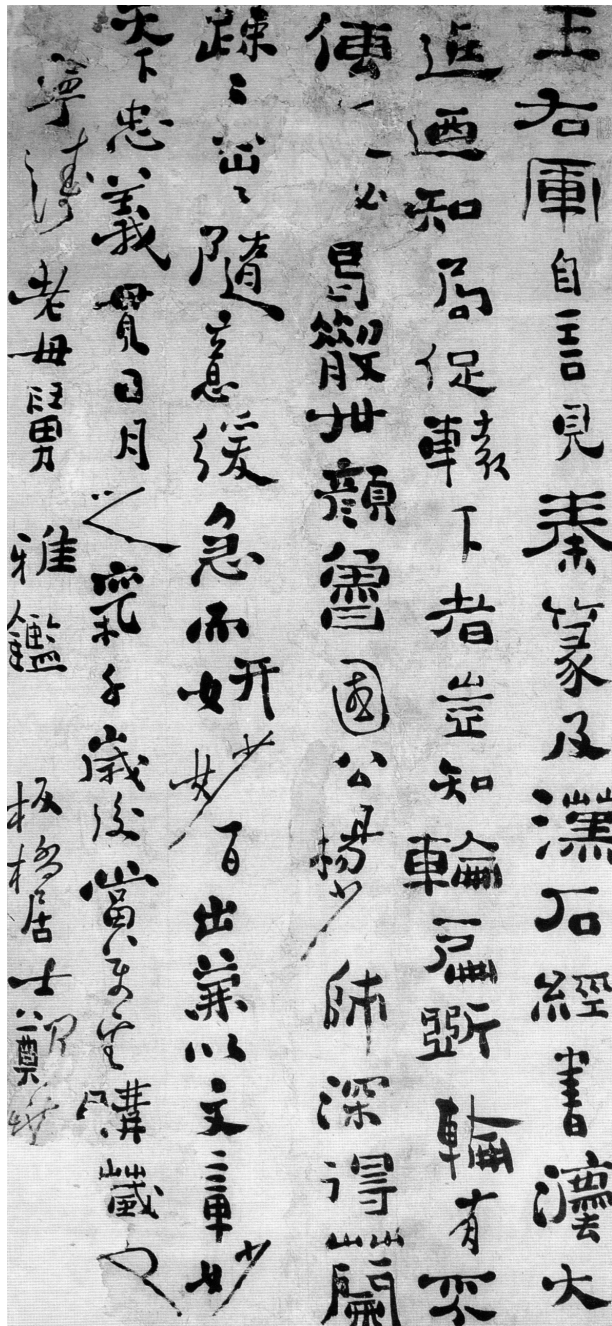 王右軍自言見秦篆及漢石經書法大
進迺知局促轅下者豈知輪扁斲輪有不
傳顏魯國公楊少師深得蘭
疎〻密〻隨意緩急而妍妙百出兼以文章妙
天下忠義貫日月之氣千歲後當購藏之
老母舅 雅鑑 板橋居士鄭燮